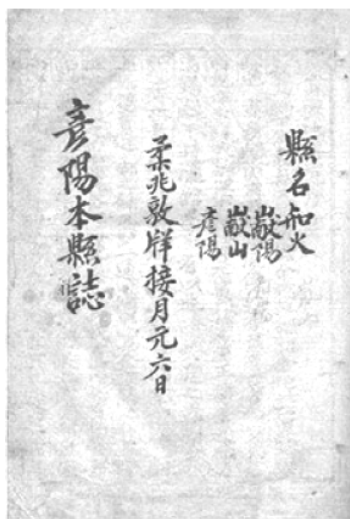 縣名知火
巘陽
巘山
彥陽
柔兆敦牂接月元六日
彥陽本縣誌